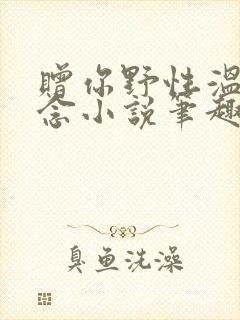 赠你野性温
念小说笔趣
臭鱼洗澡